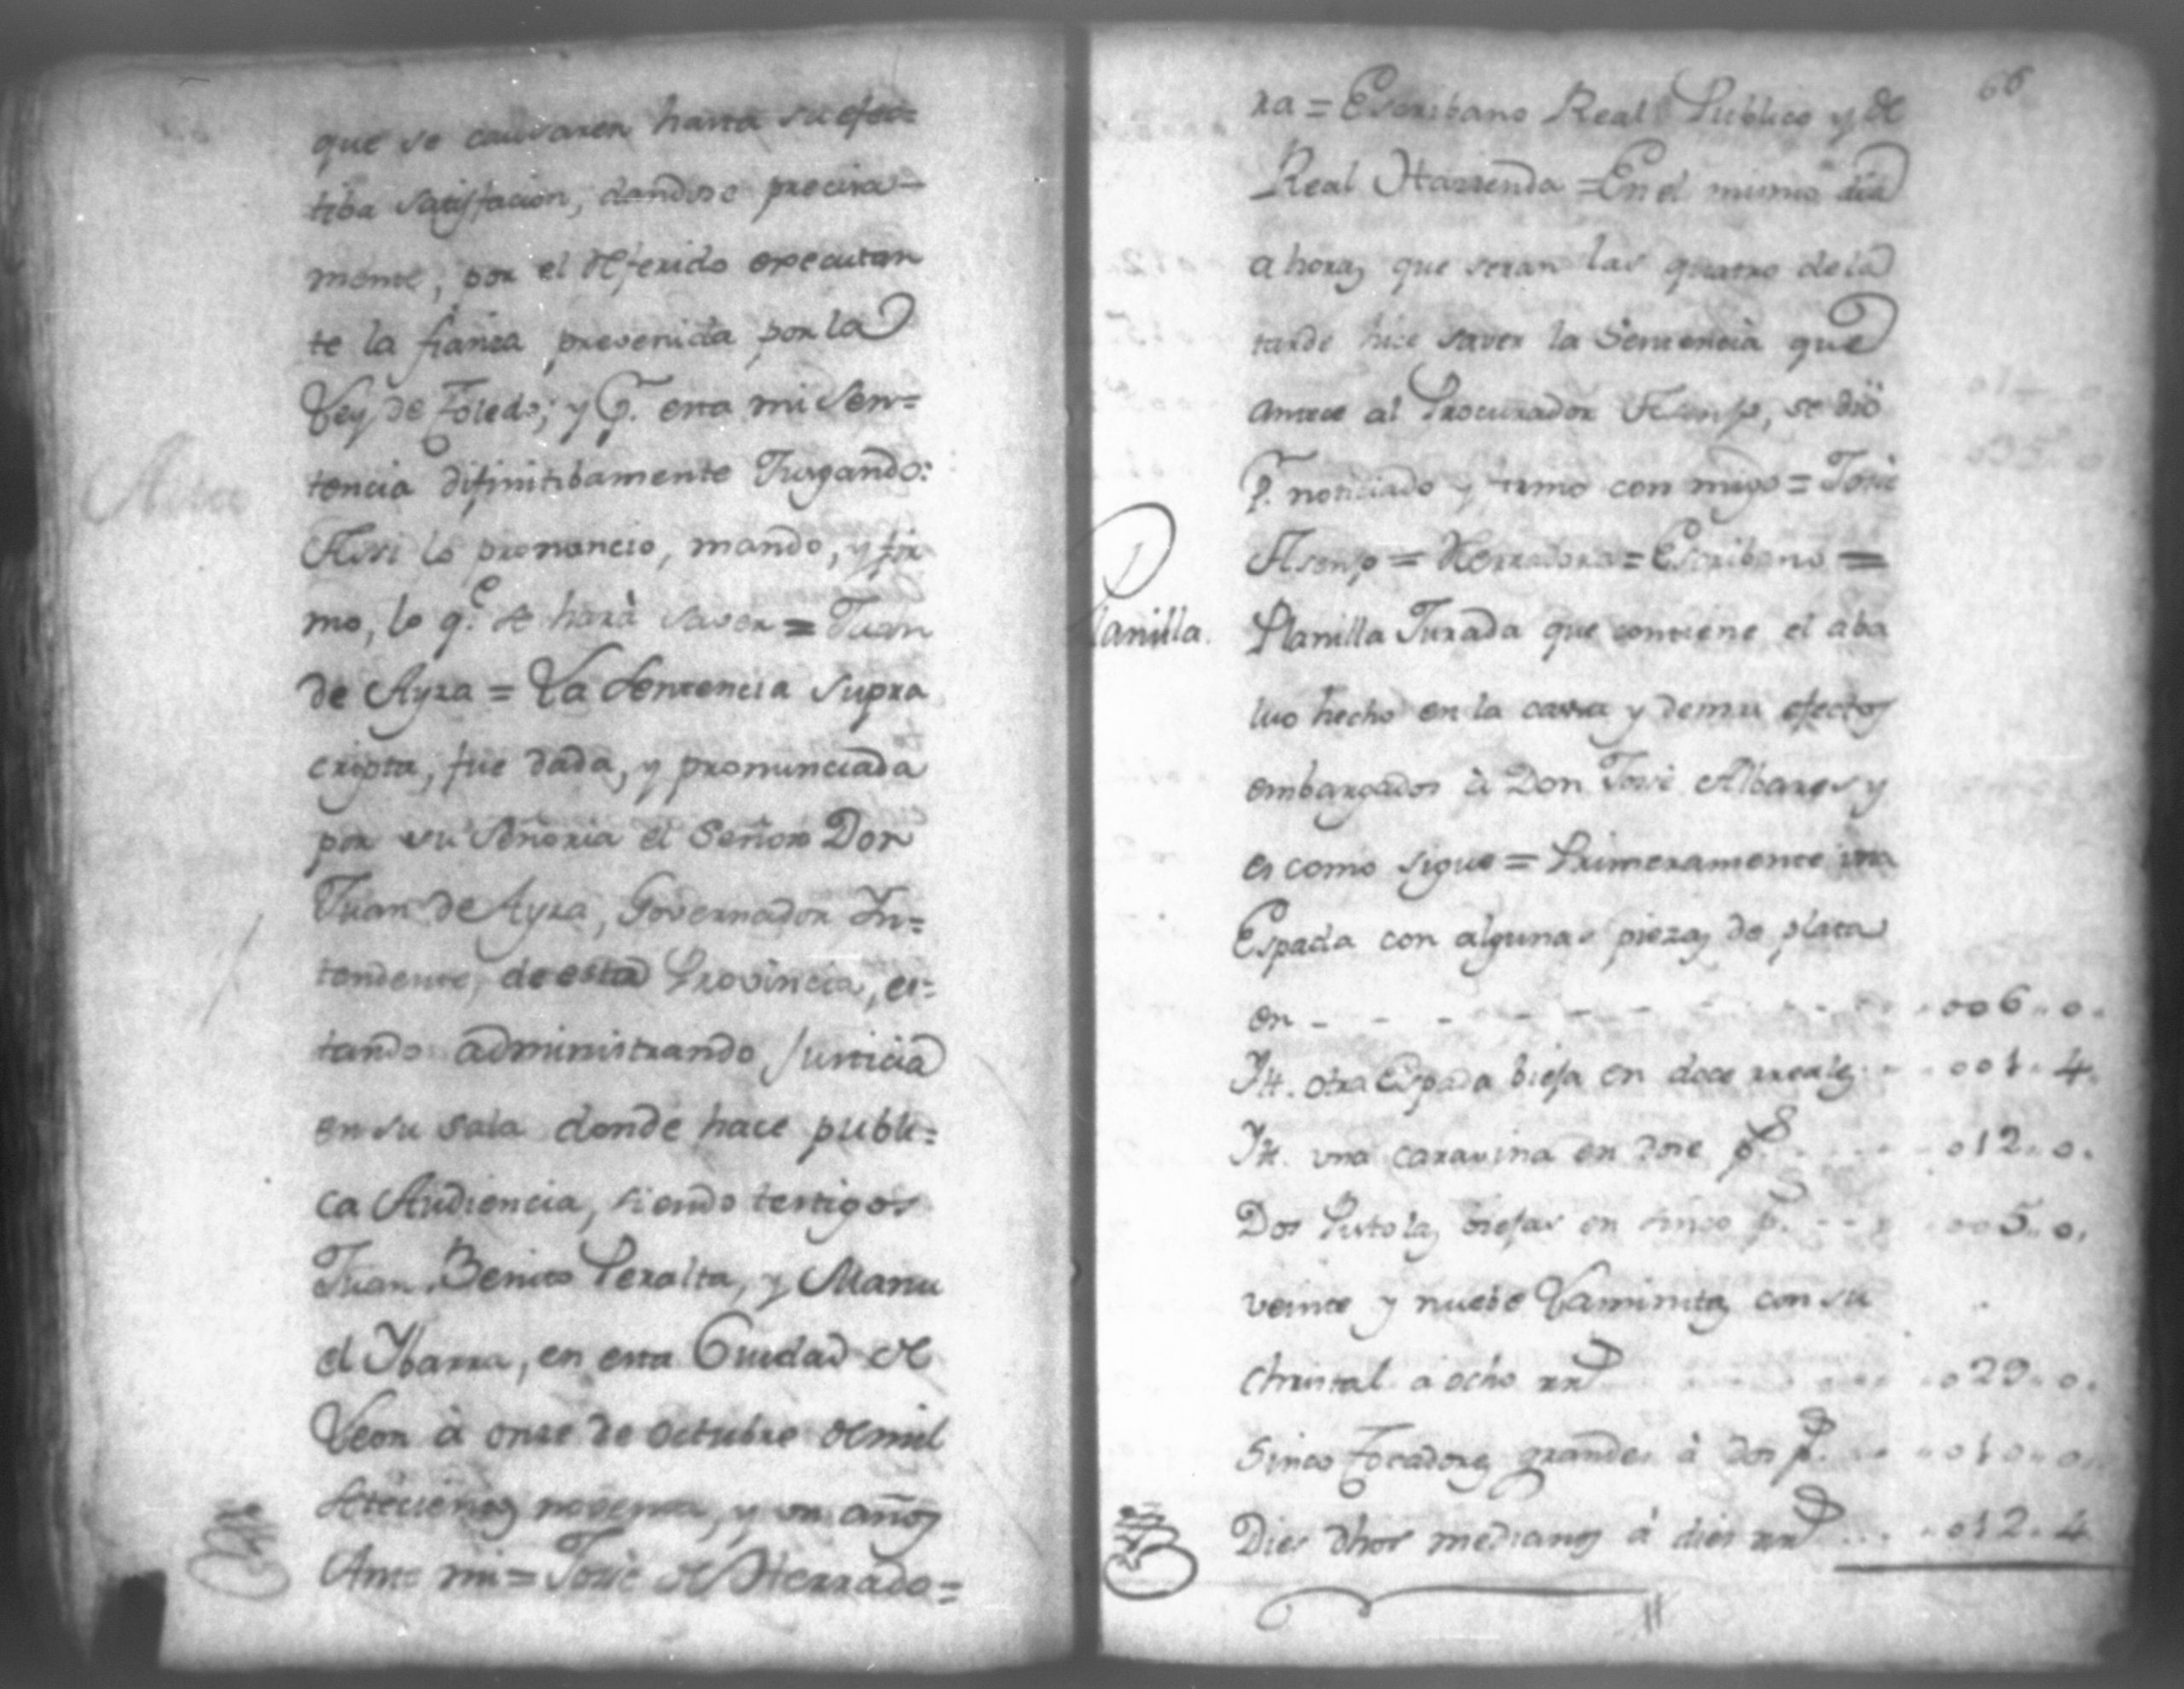 que se causaren hasta su efec=
tiba satisfacion, dandose precisa-
mente, por el referido executan
te la fianza prevenida por la
Ley de Toledo; y Pr. esta mi Sen=
tencia difinitibamente Jusgando:
Assi lo pronuncio, mando, y fir
mo, lo qe. se hará saver = Juan
de Ayza = La Sentencia supra
cripta, fue dada, y pronunciada
por su Señoria el Señor Don
Juan de Ayza, Governador In=
tendente, de esta Provincia, es=
tando administrando Justicia
en su sala donde hace publi=
ca Audiencia, siendo testigos
Juan Benito Peralta, y Manu
el Ybarra, en esta Ciudad de
Leon à onse de Octubre de mil
setecientos noventa, y un años
Ante mi = José de Herrado=
66
ra = Escribano Real Publico y de
Real Hazienda = En el mismo dia
a horas que seran las quatro de la
tarde hice saver la Sentencia que
antece al Procurador Asensio, se dió
Pr. noticiado y firmó con migo = José
Asensio = Herradora = Escribano =
Planilla.
Planilla Jurada que contiene el aba
luo hecho en la casa y demas efectos
embargados à Don José Albares y
es como sigue = Primeramente una
Espada con algunas piezas de plata
en - - - - - - - - 006..0.
It. otra Espada bieja en doce rreales - - 001..4.
It. una caravina en dose ps. - - - - 012..0.
Dos Pistolas biejas en sinco ps. - - - 005..0.
veinte y nuebe Laminitas con su
christal a ocho rrs - - - - 029..0.
Sinco Tocadores grandes à dos ps. - - 010..0.
Dies dhos medianos á dies rrs ... - 012..4